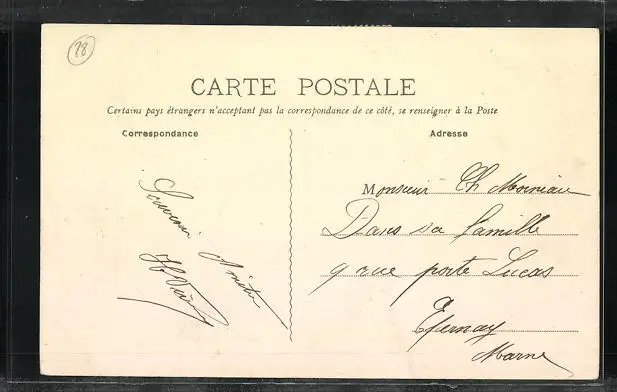 28
CARTE POSTALE
Certains pays étrangers n'acceptant pas la correspondance de ce côté, se renseigner à la Poste
Correspondance
Adresse
Souvenir
Monsieur Ch
Dans sa famille
9 rue porte Lucas
à
Epernay
Marne